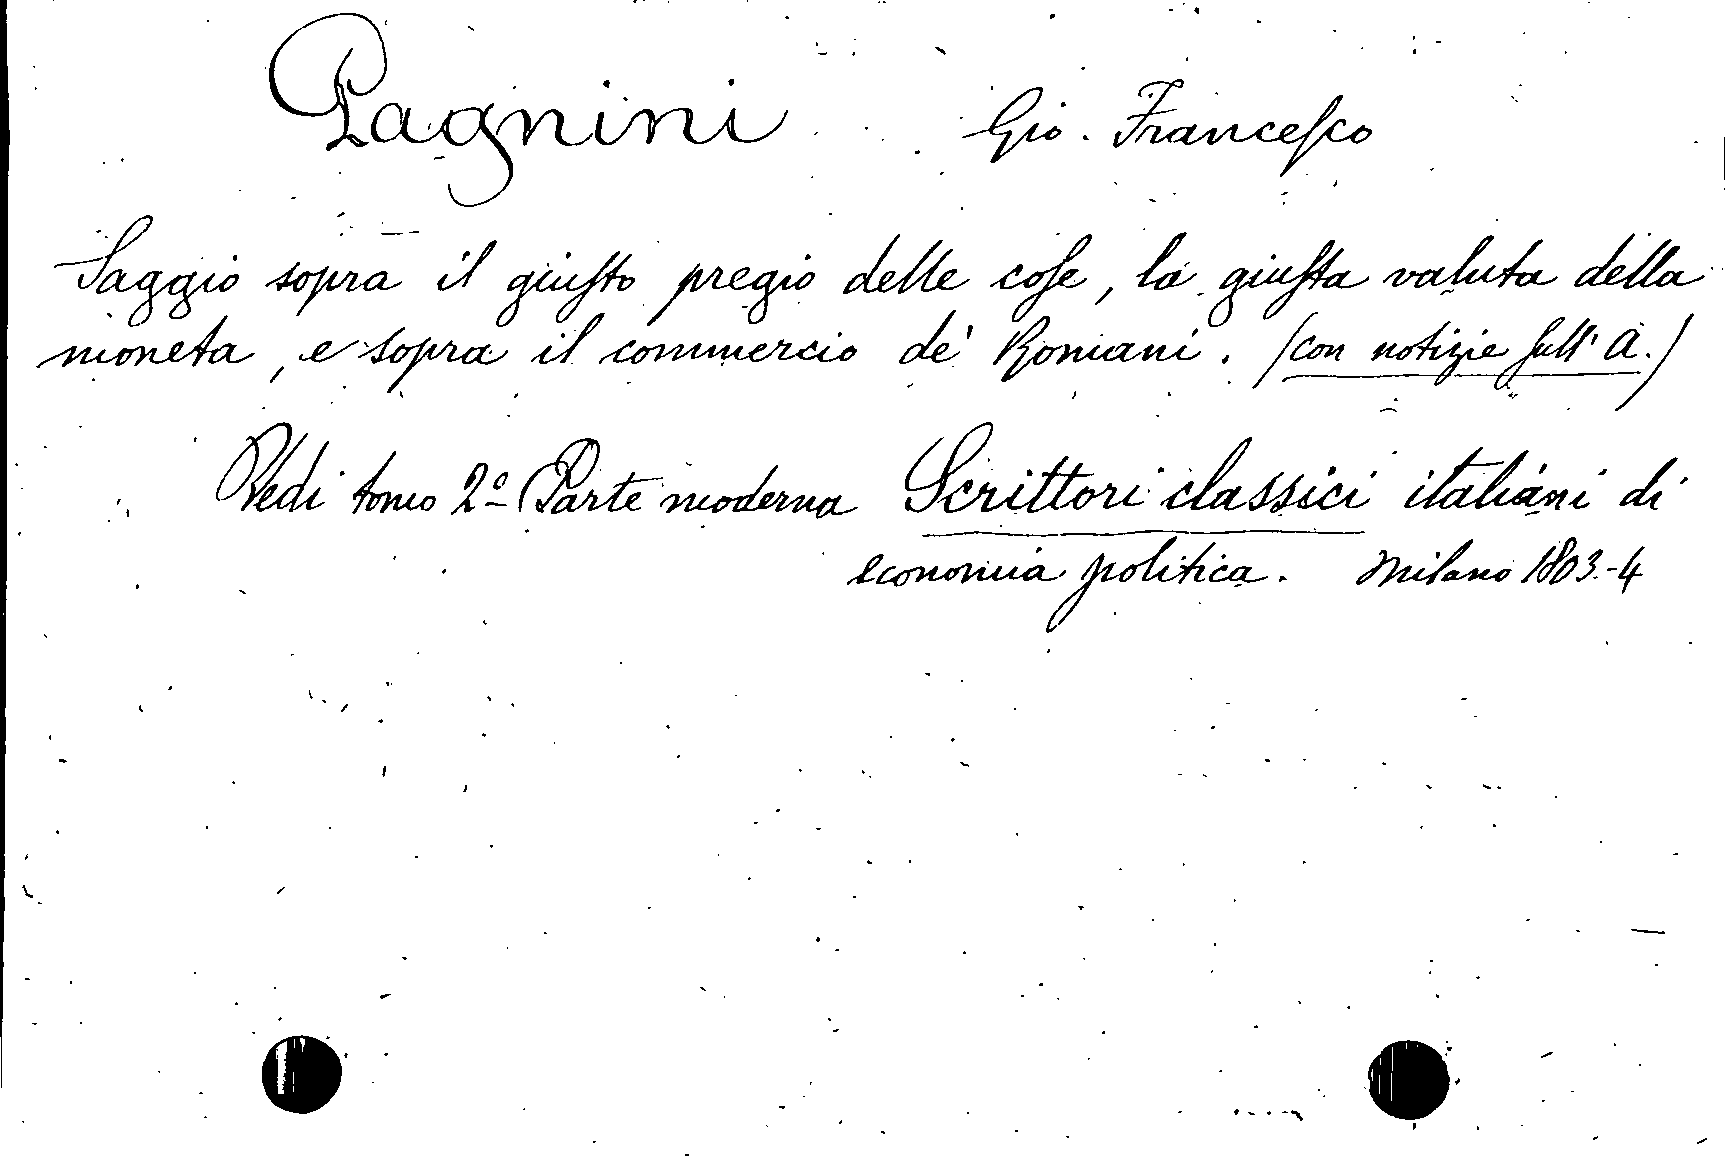 Pagnini Gio. Francesco
Saggio sopra il giusto pregio delle cose, la giusta valuta della
moneta, e sopra il commercio de' Romani. (con notizie sull' A.)
Vedi tomo 2º Parte moderna Scrittori classici italiani di
economia politica. Milano 1803-4